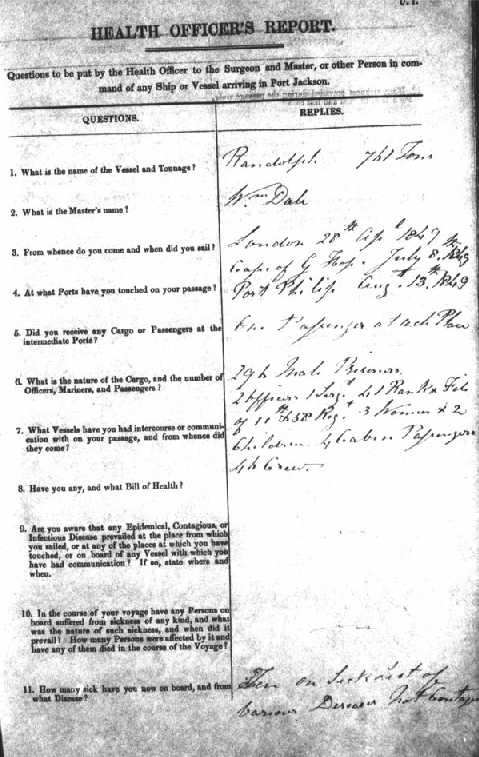 HEALTH OFFICER'S REPORT.
Questions to be put by the Health Officer to the Surgeon and Master, or other Person in com-
mand of any Ship or Vessel arriving in Port Jackson.
QUESTIONS.
REPLIES.
1. What is the name of the Vessel and Tonnage?
Randolph 761 Tons
2. What is the Master's name?
Wm Dale
3. From whence do you come and when did you sail?
London 28th Apl 1849
Cape of G Hope July 8. 1849
4. At what Ports have you touched on your passage?
Port Philip Augt 13th 1849
5. Did you receive any Cargo or Passengers at the
intermediate Ports?
One Passenger at each Place
6. What is the nature of the Cargo, and the number of
Officers, Mariners, and Passengers?
Male Prisoners
2 Officers 1 Sergt 41 Rank & File
of 11th & 58 Regt 3 Women & 2
Children 4 Cabin Passengers
Crew
7. What Vessels have you had intercourse or communi-
cation with on your passage, and from whence did
they come?
8. Have you, and what Bill of Health?
9. Are you aware that any Epidemical, Contagious, or
Infectious Disease prevailed at the place from which
you sailed, or at any of the places at which you have
touched, or on board of any Vessel with which you
have had communication? If so, state where and
when.
10. In the course of your voyage have any Persons on
board suffered from sickness of any kind, and what
was the nature of such sickness, and when did it
prevail? How many Persons were affected by it and
have any of them died in the course of the Voyage?
11. How many sick have you now on board, and from
what Disease?
on Sick List of
various Diseases Not Contagious